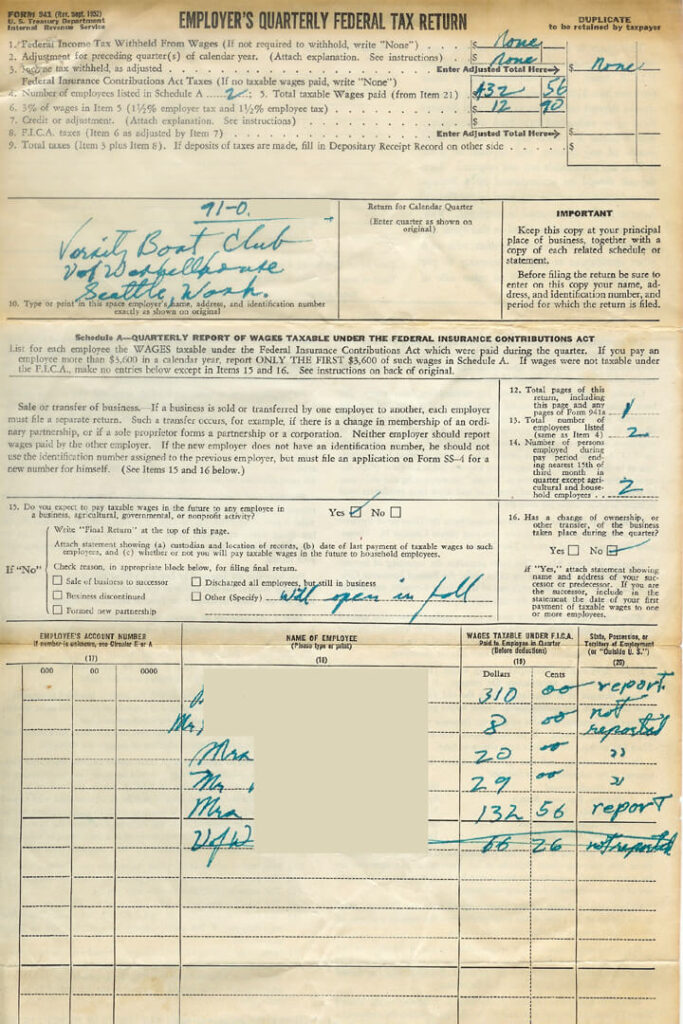 FORM 941 (Rev. Sept. 1952)
U. S. Treasury Department
Internal Revenue Service
EMPLOYER'S QUARTERLY FEDERAL TAX RETURN
DUPLICATE
to be retained by taxpayer
1. Federal Income Tax Withheld From Wages (If not required to withhold, write "None") $ None
2. Adjustment for preceding quarter(s) of calendar year. (Attach explanation. See instructions) $ None
3. Income tax withheld, as adjusted Enter Adjusted Total Here $ None
Federal Insurance Contributions Act Taxes (If no taxable wages paid, write "None")
4. Number of employees listed in Schedule A 2; 5. Total taxable Wages paid (from Item 21) $ 432 56
6. 3% of wages in Item 5 (1½% employer tax and 1½% employee tax) $ 12 90
7. Credit or adjustment. (Attach explanation. See instructions) $
8. F.I.C.A. taxes (Item 6 as adjusted by Item 7) Enter Adjusted Total Here $
9. Total taxes (Item 3 plus Item 8). If deposits of taxes are made, fill in Depositary Receipt Record on other side $
91-0.
Varsity Boat Club
U of W Shellhouse
Seattle, Wash.
10. Type or print in this space employer's name, address, and identification number
exactly as shown on original
Return for Calendar Quarter
(Enter quarter as shown on
original)
IMPORTANT
Keep this copy at your principal
place of business, together with a
copy of each related schedule or
statement.
Before filing the return be sure to
enter on this copy your name, ad-
dress, and identification number, and
period for which the return is filed.
Schedule A—QUARTERLY REPORT OF WAGES TAXABLE UNDER THE FEDERAL INSURANCE CONTRIBUTIONS ACT
List for each employee the WAGES taxable under the Federal Insurance Contributions Act which were paid during the quarter. If you pay an
employee more than $3,600 in a calendar year, report ONLY THE FIRST $3,600 of such wages in Schedule A. If wages were not taxable under
the F.I.C.A., make no entries below except in Items 15 and 16. See instructions on back of original.
Sale or transfer of business.—If a business is sold or transferred by one employer to another, each employer
must file a separate return. Such a transfer occurs, for example, if there is a change in membership of an ordi-
nary partnership, or if a sole proprietor forms a partnership or a corporation. Neither employer should report
wages paid by the other employer. If the new employer does not have an identification number, he should not
use the identification number assigned to the previous employer, but must file an application on Form SS-4 for
a new number for himself. (See Items 15 and 16 below.)
12. Total pages of this
return, including
this page and any
pages of Form 941a 1
13. Total number of
employees listed
(same as Item 4) 2
14. Number of persons
employed during
pay period end-
ing nearest 15th of
third month in
quarter except agri-
cultural and house-
hold employees 2
15. Do you expect to pay taxable wages in the future to any employee in
a business, agricultural, governmental, or nonprofit activity? Yes No
If "No"
Write "Final Return" at the top of this page.
Attach statement showing (a) custodian and location of records, (b) date of last payment of taxable wages to such
employees, and (c) whether or not you will pay taxable wages in the future to household employees.
Check reason, in appropriate block below, for filing final return.
Sale of business to successor
Discharged all employees, but still in business
Business discontinued
Other (Specify) Will open in fall
Formed new partnership
16. Has a change of ownership,
or other transfer, of the business
taken place during the quarter?
Yes No
If "Yes," attach statement showing
name and address of your suc-
cessor or predecessor. If you are
the successor, include in the
statement the date of your first
payment of taxable wages to one
or more employees.
EMPLOYEE'S ACCOUNT NUMBER
If number is unknown, see Circular E or A
(17)
000 00 0000
NAME OF EMPLOYEE
(Please type or print)
(18)
WAGES TAXABLE UNDER F.I.C.A.
Paid to Employee in Quarter
(Before deductions)
(19)
Dollars Cents
State, Possession, or
Territory of Employment
(or "Outside U. S.")
(20)
310 00 report
Mr 8 00 not reported
Mrs 20 00 "
Mr 29 00 "
Mrs 132 56 report
U of W 66 26 not reported